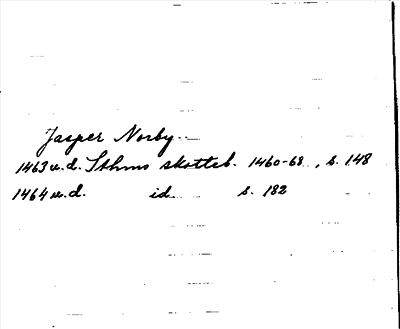 Jasper Norby.
1463 u.d. Sthms skotteb. 1460-68, s. 148
1464 u.d. id s. 182